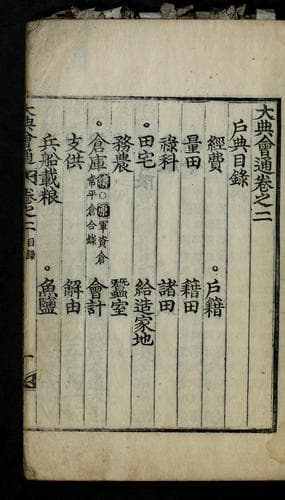 大典會通卷之二
戶典目錄
經費 戶籍
量田 籍田
祿科 諸田
田宅 給造家地
務農 蠶室
倉庫 續 原 軍資倉 常平倉合錄 會計
支供 解由
兵船載粮 魚鹽
大典會通 卷之二 目錄 一